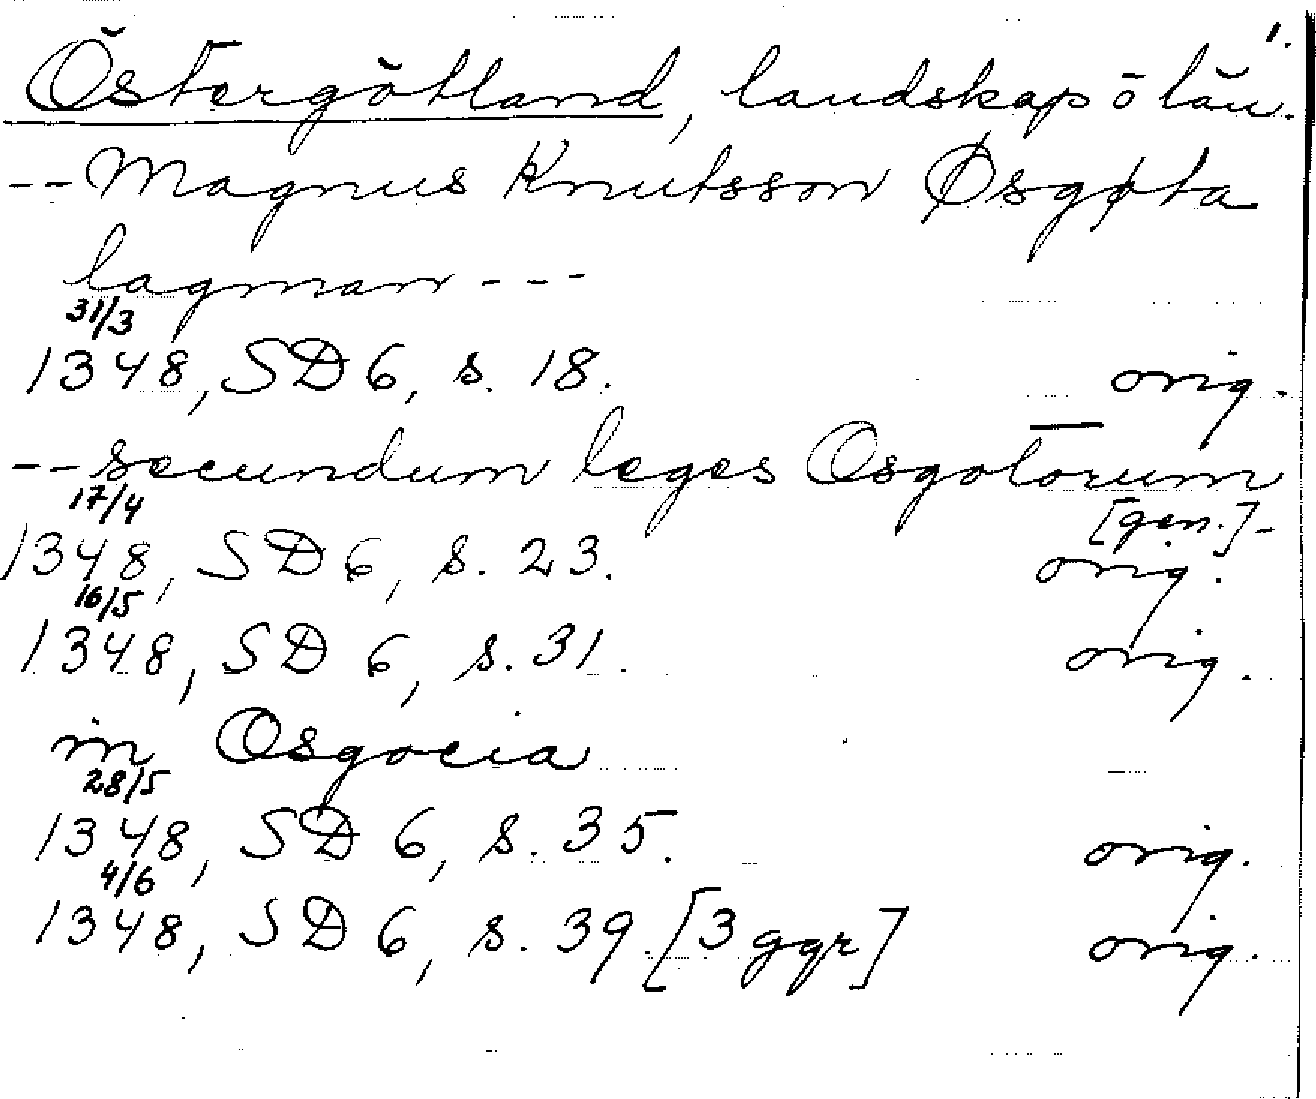 1.
Östergötland, landskap o län.
-- Magnus Knutsson Øsgøta
lagman ---
31/3
1348, SD 6, s. 18. orig.
-- secundum leges Osgotorum
17/4 [gen.] -
1348, SD 6, s. 23. orig.
16/5
1348, SD 6, s. 31. orig.
in Osgocia
28/5
1348, SD 6, s. 35. orig.
4/6
1348, SD 6, s. 39. [3 ggr] orig.